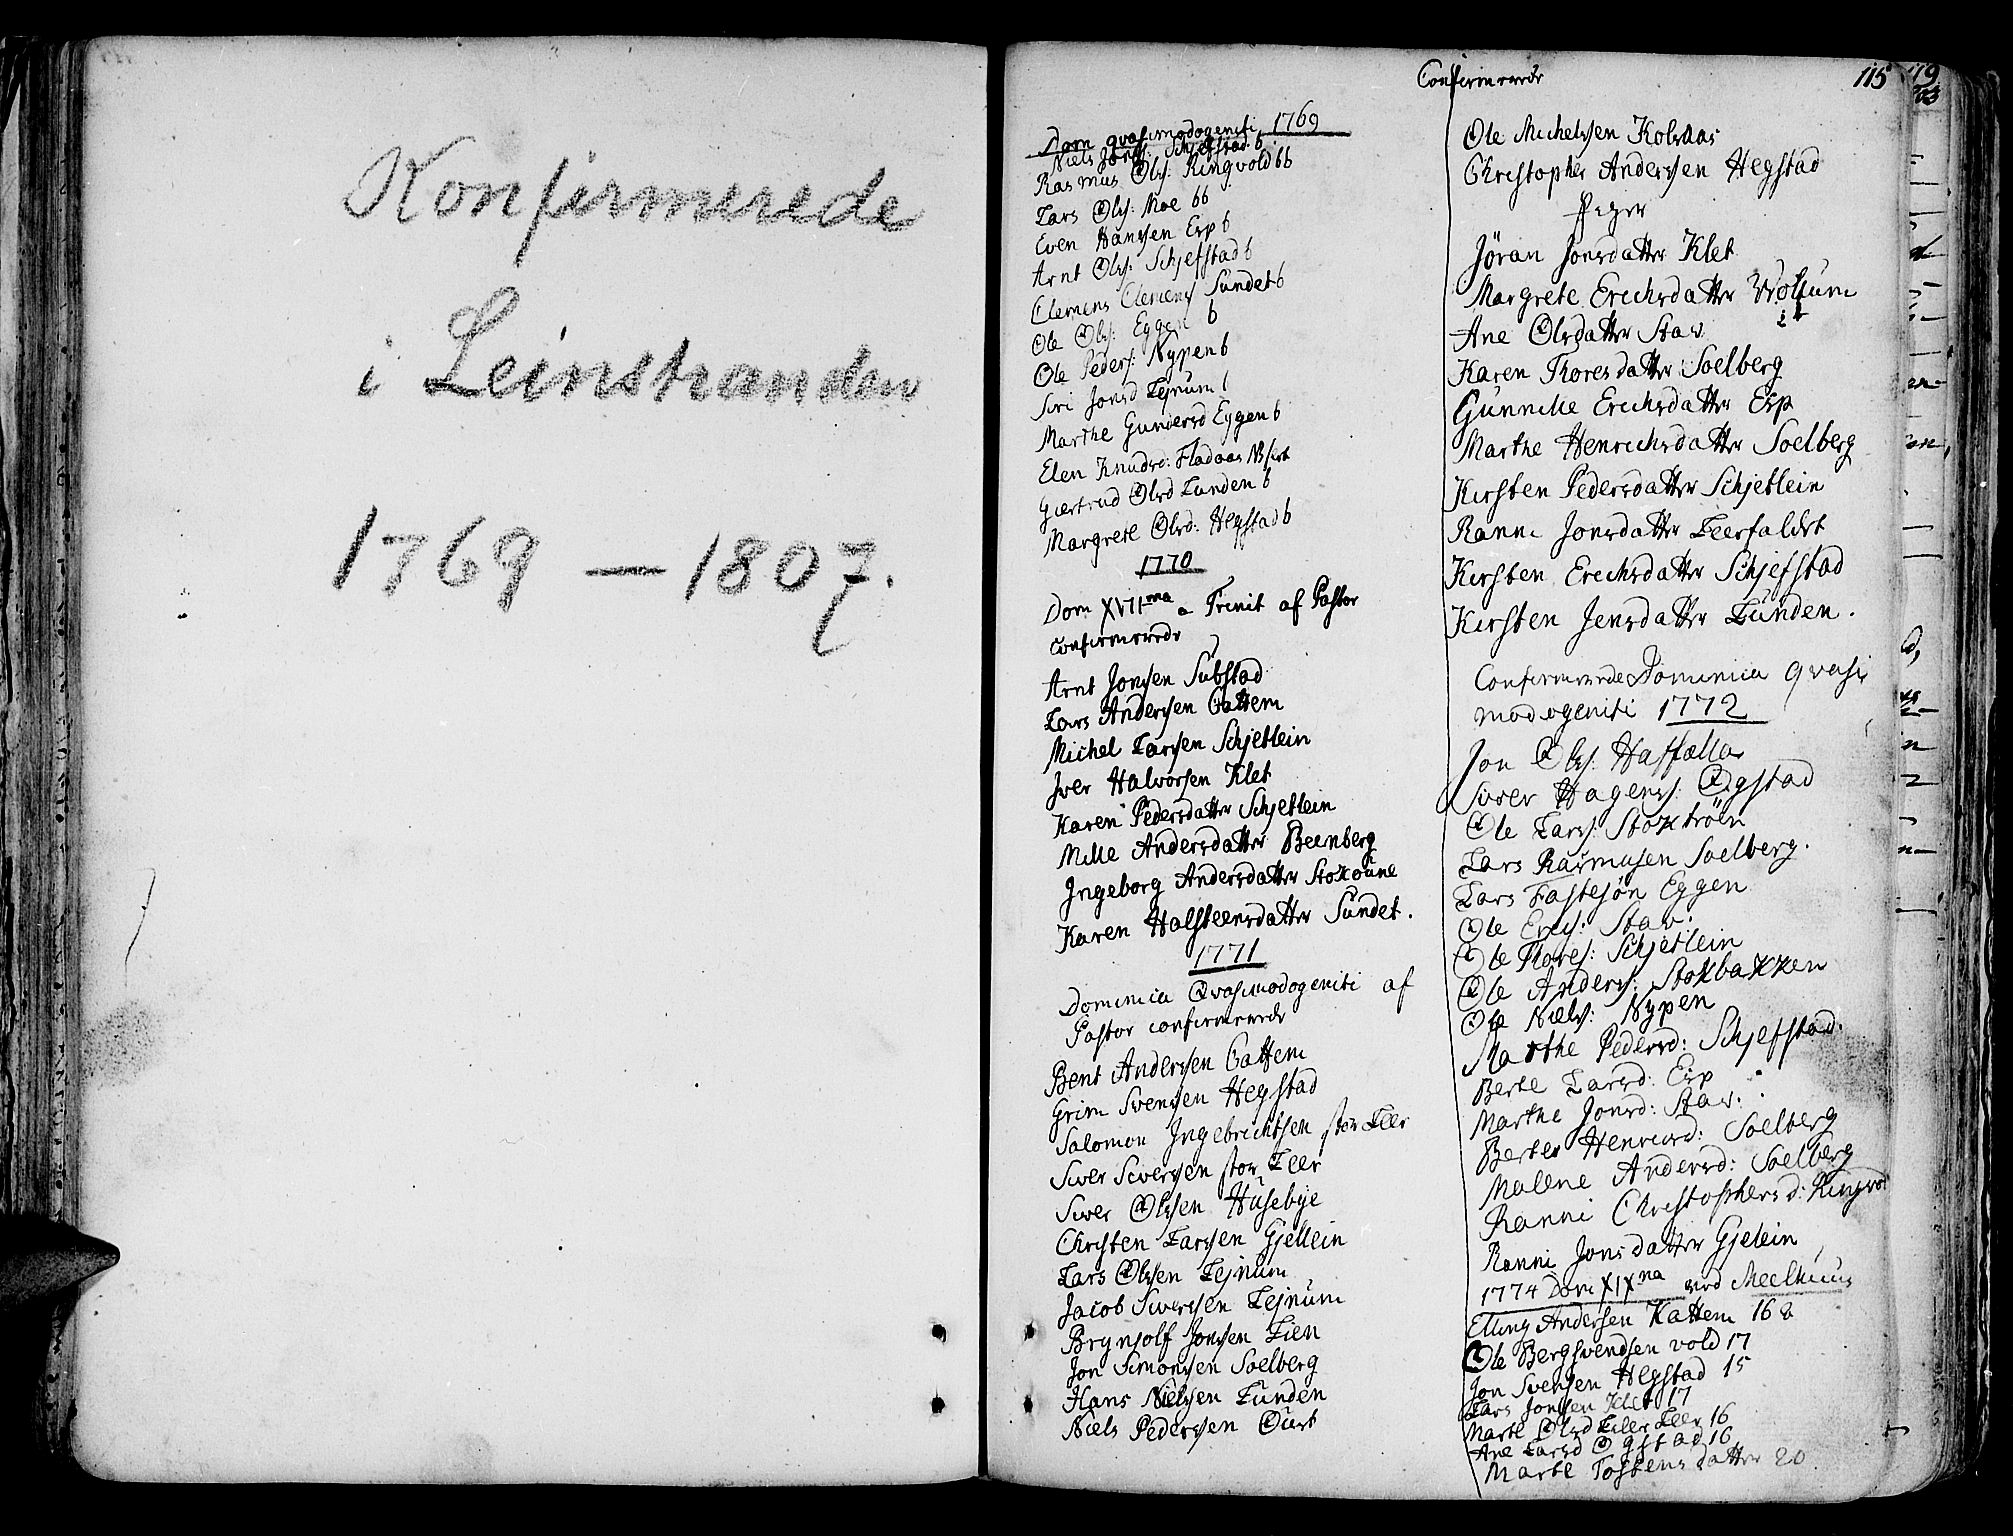 Konfirmerede
i Leinstranden
1769 — 1807.
Confirmerede
115
119
Dom qvasimodogeniti 1769
Niels Jons: Schjefstad b
Rasmus Ols: Ringvold bb
Lars Ols: Moe bb
Even Hansen Esp b
Arnt Ols: Schjefstad b
Clemens Clemens Sundet b
Ole Ols: Eggen b
Ole Peders: Nypen b
Siri Jonsd Lejnum
Marthe Gundersd Eggen b
Elen Knudsd: Fladaas
Giertrud Olsd Lunden b
Margrete Olsd: Hegstad b
1770
Dom XVIIma a Trinit af Pastor
confirmerede
Arnt Jonsen Substad
Lars Andersen Cattem
Michel Larsen Schjetlein
Iver Halvorsen Klet
Karen Pedersdatter Schjetlein
Mille Andersdatter Beenberg
Ingeborg Andersdatter Stokoune
Karen Halsteensdatter Sundet.
1771
Dominica Qvasimodogeniti af
Pastor confirmerede
Bent Andersen Cattem
Grim Svensen Hegstad
Salomon Ingebrichtsen stor Leer
Siver Siversen stor Leer
Siver Olsen Husebye
Christen Larsen Gjellein
Lars Olsen Lejnum
Jacob Siversen Lejnum
Brynjolf Jonsen Lien
Jon Simonsen Soelberg
Hans Nielsen Lunden
Niels Pedersen Oust
Ole Michelsen Kolsaas
Christopher Andersen Hegstad
Piger
Jöran Jonsdatter Klet
Margrete Erichsdatter
Ane Olsdatter Stav
Karen Thoresdatter Soelberg
Gunnille Erichsdatter Esp
Marthe Henrichsdatter Soelberg
Kirsten Pedersdatter Schjetlein
Ranni Jonsdatter Leerfaldet
Kirsten Erichsdatter Schjefstad
Kirsten Jensdatter Lunden.
Confirmerede Dominica qvasi
modogeniti 1772
Jon Ols: Hasfælla
Siver Hagens: Øgstad
Ole Lars: Stoktröen
Lars Rasmusen Soelberg.
Lars Fastesøn Eggen
Ole Erics: Stav:
Ole Thores: Schjetlein
Ole Anders: Stokbakken
Ole Niels: Nypen
Marthe Pedersd: Schjefstad.
Berte Larsd: Esp
Marthe Jonsd: Stav:
Berte Henricsd: Soelberg
Malene Andersd: Soelberg
Ranni Christophersd: Ringvol
Ranni Jonsdatter Gjelein
1774 Dom XIXna ved Meelhuus
Elling Andersen Kattem 16
Ole Bergsvendsen vold 17
Jon Svensen Hegstad 15
Lars Jonsen Klet 17
Marte Olsd Liller Leer 16
Ane Larsd Øgstad 16
Marte Tostensdatter 20